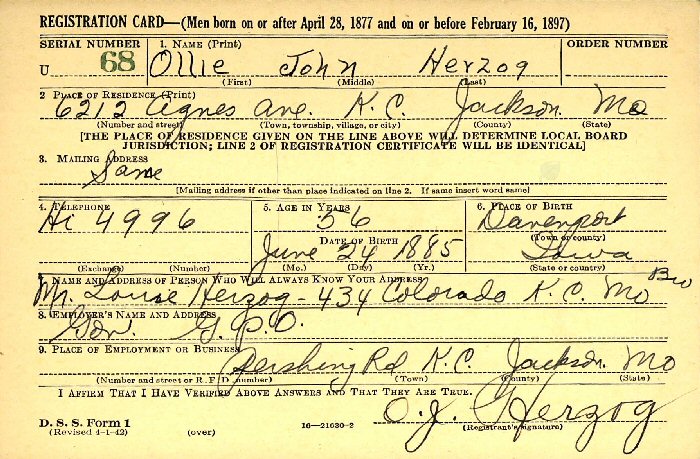 REGISTRATION CARD—(Men born on or after April 28, 1877 and on or before February 16, 1897)
SERIAL NUMBER 1. NAME (Print) ORDER NUMBER
U 68 Ollie John Herzog
(First) (Middle) (Last)
2 PLACE OF RESIDENCE (Print)
6212 Agnes Ave. K.C. Jackson Mo
(Number and street) (Town, township, village, or city) (County) (State)
[THE PLACE OF RESIDENCE GIVEN ON THE LINE ABOVE WILL DETERMINE LOCAL BOARD
JURISDICTION; LINE 2 OF REGISTRATION CERTIFICATE WILL BE IDENTICAL]
3. MAILING ADDRESS
Same
[Mailing address if other than place indicated on line 2. If same insert word same]
4. TELEPHONE 5. AGE IN YEARS 6. PLACE OF BIRTH
Hi 4996 56 Davenport
DATE OF BIRTH (Town or county)
June 24 1885 Iowa
(Exchange) (Number) (Mo.) (Day) (Yr.) (State or country)
7. NAME AND ADDRESS OF PERSON WHO WILL ALWAYS KNOW YOUR ADDRESS
Mr. Louise Herzog - 434 Colorado K.C. Mo Bro
8. EMPLOYER'S NAME AND ADDRESS
Gov. G.P.O.
9. PLACE OF EMPLOYMENT OR BUSINESS
Pershing Rd K.C. Jackson Mo
(Number and street or R. F. D. number) (Town) (County) (State)
I AFFIRM THAT I HAVE VERIFIED ABOVE ANSWERS AND THAT THEY ARE TRUE.
O.J. Herzog
D. S. S. Form 1 (Registrant's signature)
(Revised 4-1-42) (over) 16—21630-2